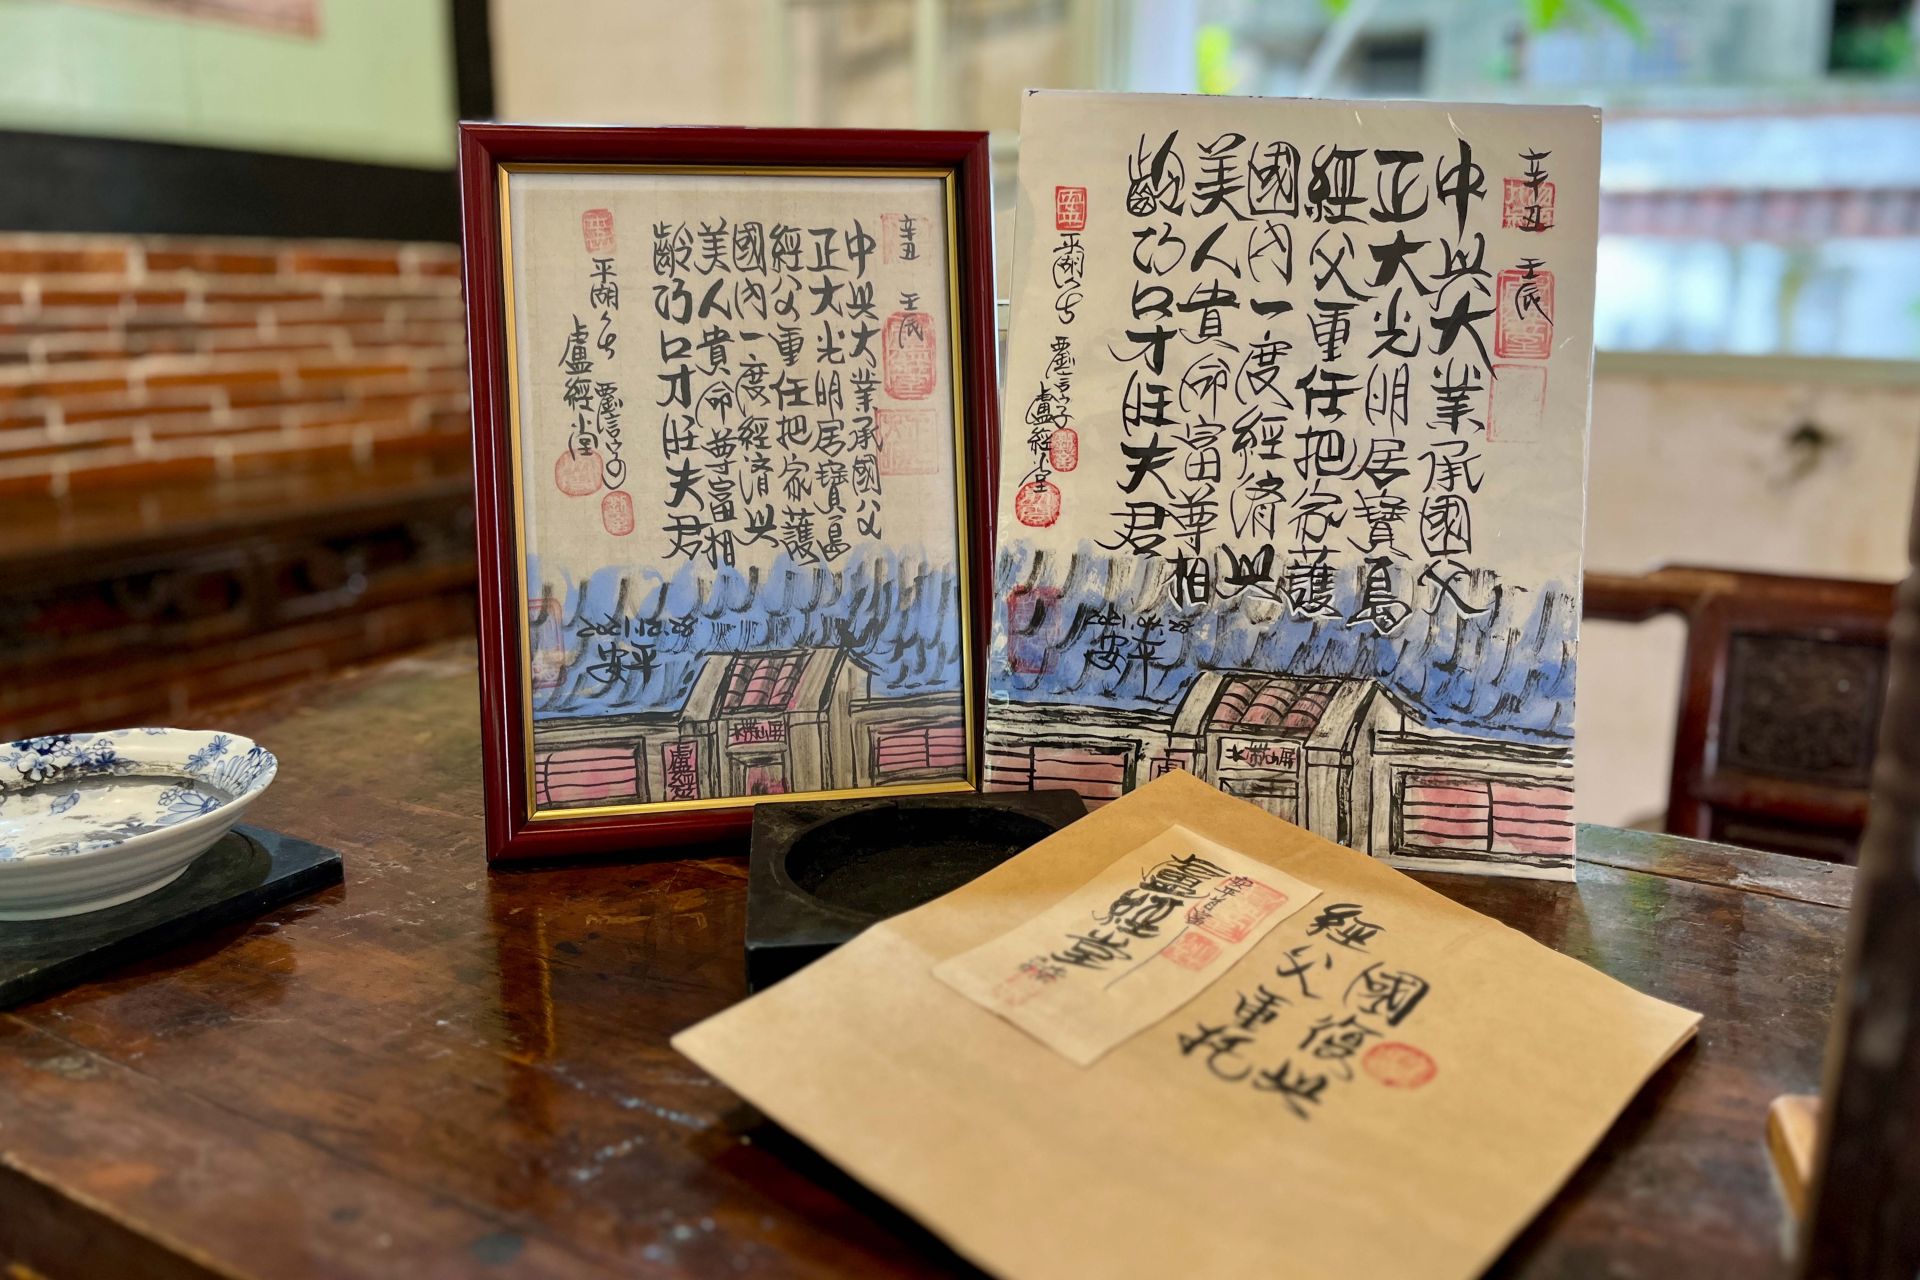 辛丑 壬辰
中興大業承國父
正大光明居寶島
經父重任把家護
國內一度經濟興
美人貴命尊富相
齡巧口才旺夫君
平湖
劉信子
盧經堂
2021.12.28
安平
盧經堂
辛丑 壬辰
中興大業承國父
正大光明居寶島
經父重任把家護
國內一度經濟興
美人貴命富尊相
齡巧口才旺夫君
平湖
劉信子
盧經堂
2021.04.28
安平
盧經堂
國復興
經父重托